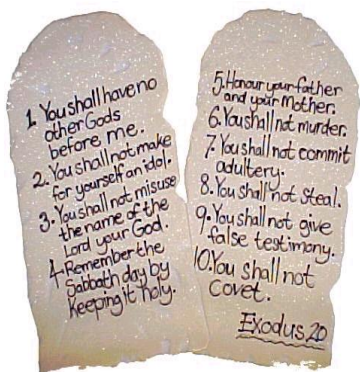 1. You shall have no
other Gods
before me.
2. You shall not make
for yourself an idol.
3. You shall not misuse
the name of the
Lord your God.
4. Remember the
Sabbath day by
keeping it holy.
5. Honour your father
and your Mother.
6. You shall not murder.
7. You shall not commit
adultery.
8. You shall not steal.
9. You shall not give
false testimony.
10. You shall not
covet.
Exodus, 20